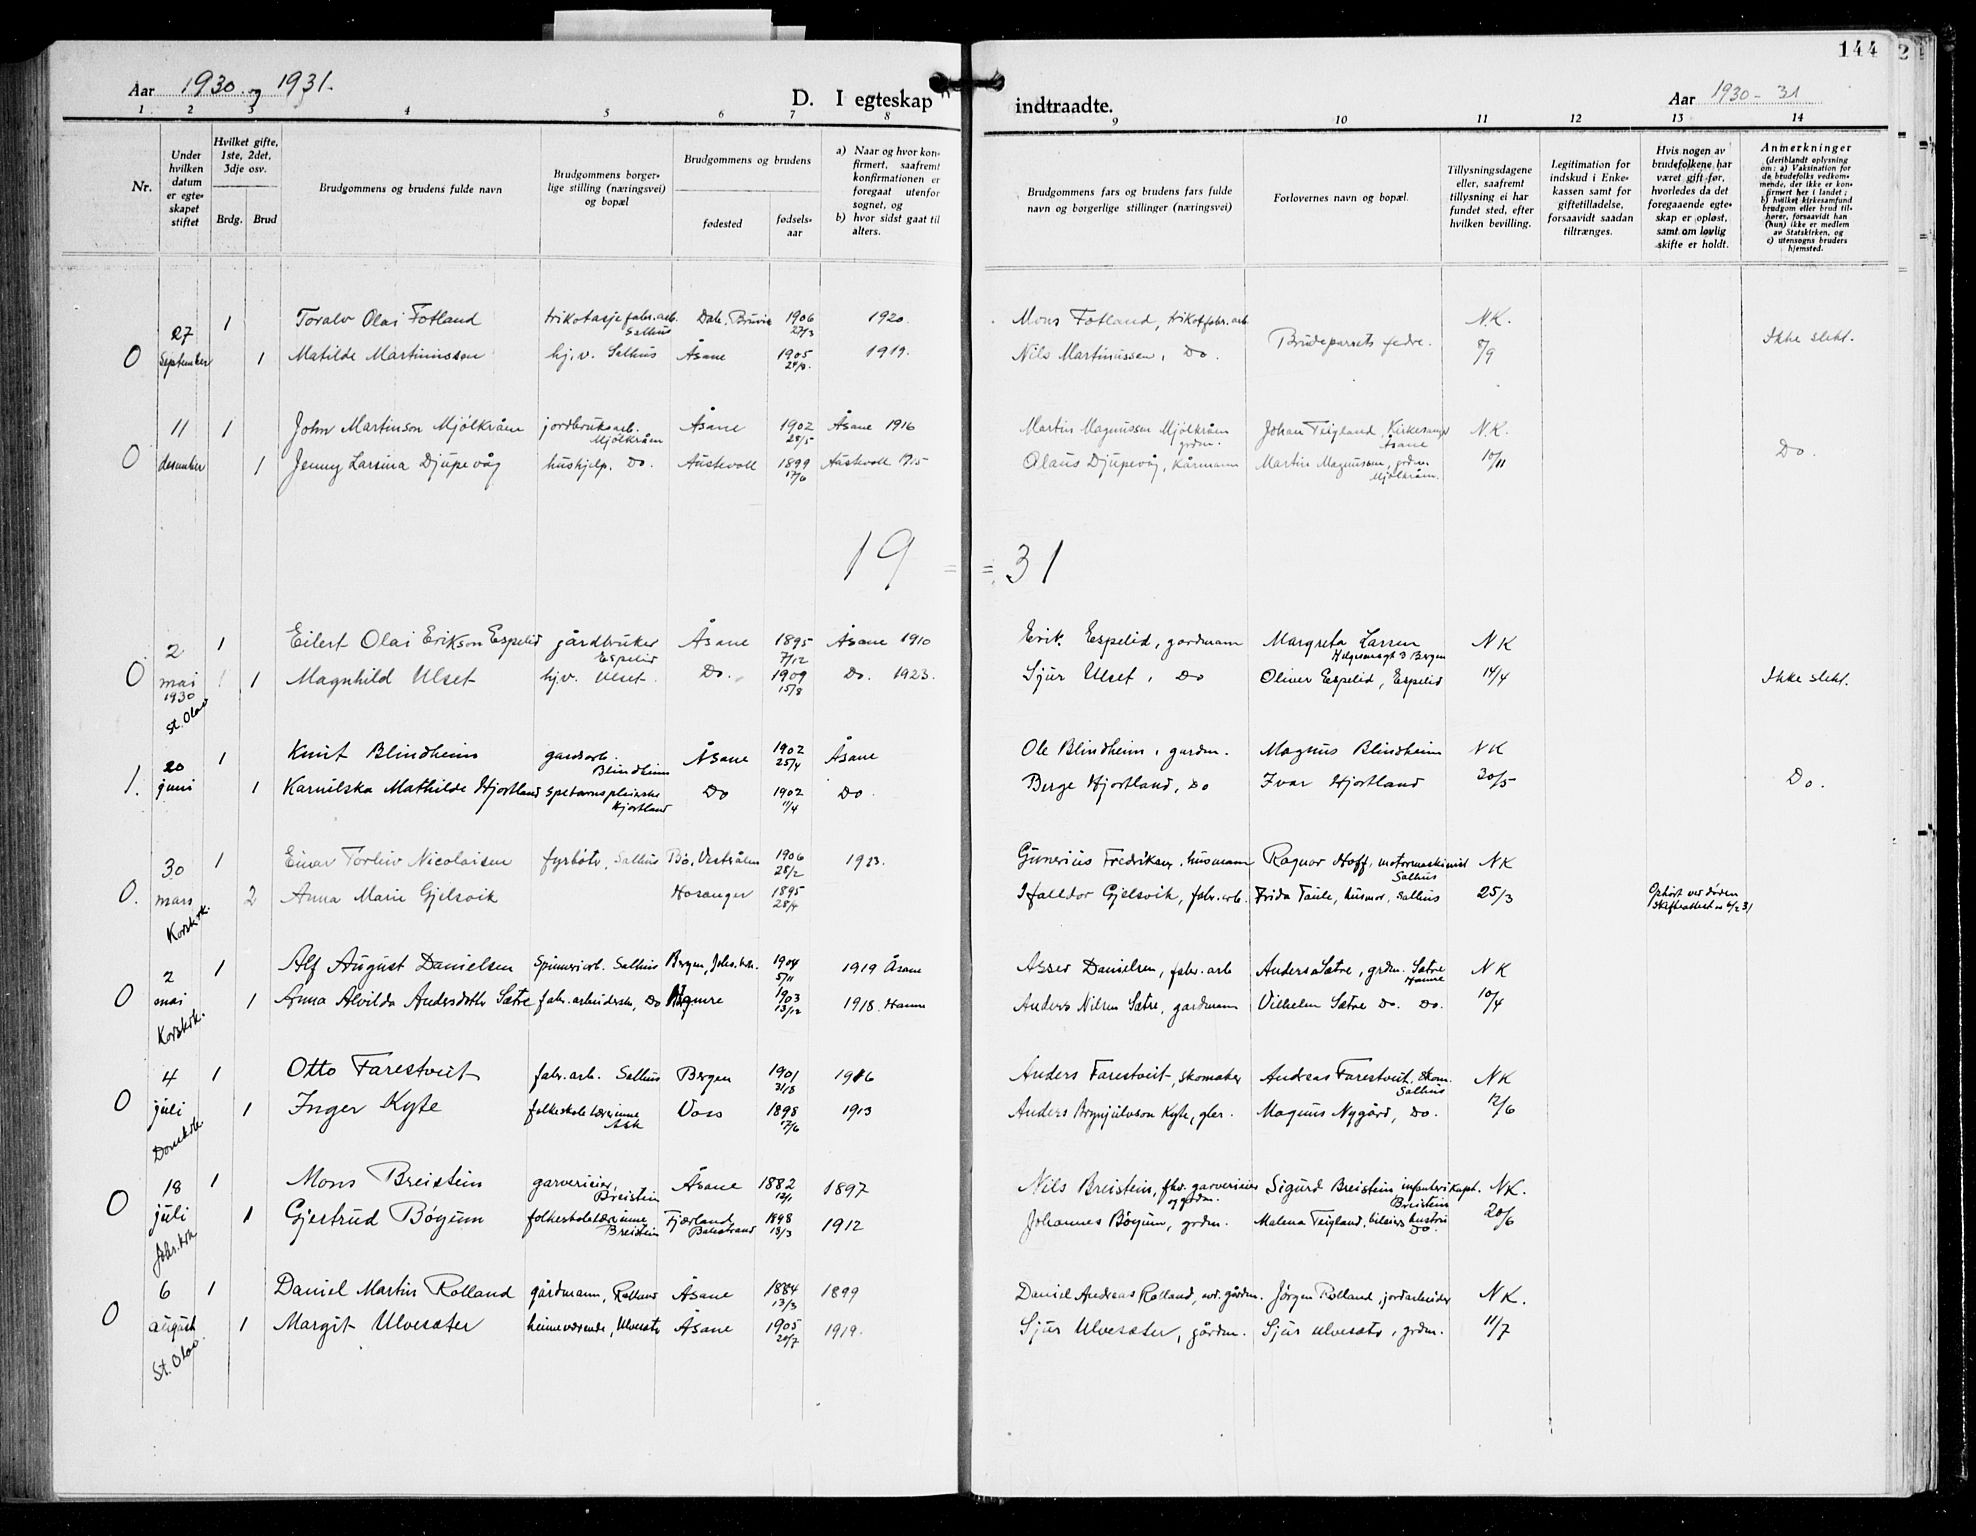 Aar 1930. og 1931.
D. I egteskap indtraadte.
Aar 1930 - 31
144
1 2 3 4 5 6 7 8 9 10 11 12 13 14
Nr.
Under hvilken datum er egte-skapet stiftet
Hvilket gifte, 1ste, 2det, 3dje osv.
Brdg. Brud
Brudgommens og brudens fulde navn
Brudgommens borger-lige stilling (næringsvei) og bopæl
Brudgommens og brudens
fødested
fødsels-aar
a) Naar og hvor kon-firmert, saafremt konfirmationen er foregaat utenfor sognet, og
b) hvor sidst gaat til alters.
Brudgommens fars og brudens fars fulde navn og borgerlige stillinger (næringsvei)
Forlovernes navn og bopæl.
Tillysningsdagene eller, saafremt tillysning ei har fundet sted, efter hvilken bevilling.
Legitimation for indskud i Enke-kassen samt for giftetilladelse, forsaavidt saadan tiltrænges.
Hvis nogen av brudefolkene har været gift før, hvorledes da det foregaaende egte-skap er opløst, samt om lovlig skifte er holdt.
Anmerkninger
(deriblandt oplysning om: a) Vaksination for de brudefolks vedkom-mende, der ikke er kon-firmert her i landet; b) hvilket kirkesamfund brudgom eller brud til-hører, forsaavidt han (hun) ikke er medlem av Statskirken, og c) utensogns bruders hjemsted.
27 1 Toralv Olai Fotland trikotasjefabr.arb. Salhus Dale, Bruvik 1906 27/3 1920. Mons Fotland, trikotfabr.arb. Brudeparrets fedre. N.K.
0 September 1 Matilde Martinussen hj.v. Salhus Åsane 1905 1919. Nils Martinussen, Do. 8/9 Ikke slekt.
11 1 John Martinson Mjølkråen jordbruksarb. Mjølkråen Åsane 1902 28/5 Åsane 1916 Martin Magnussen Mjølkråen grdm. Johan Teigland, Kirkesanger Åsane N.K.
0 desember 1 Jenny Larsina Djupevåg hushjelp. Do. Austevoll 1899 17/6 Austevoll 1915 Olaus Djupevåg, Kårmann Martin Magnussen, grdm. Mjølkråen. 10/11 Do.
19 = = 31
2 1 Eilert Olai Erikson Espelid gårdbruker Espelid Åsane 1895 7/12 Åsane 1910 Erik Espelid, gardmann Margreta Larsen Bergen NK
0 mai 1930 St. Olav 1 Magnhild Ulset hj.v. Ulset. Do. 1909 15/8 Do. 1923. Sjur Ulset, Do Oliver Espelid, Espelid 14/4 Ikke slekt.
20 1 Knut Blindheim gardsarb. Blindheim Åsane 1902 25/4 Åsane Ole Blindheim, gardm. Magnus Blindheim NK
1. juni 1 Karnilska Mathilde Hjortland Hjortland Do 1902 11/4 Do. Berge Hjortland, Do Ivar Hjortland 30/5 Do.
30 1 Einar Torleiv Nicolaisen fyrbøter, Salhus Bø, Vesterålen 1906 28/2 1923. Gunerius Fredriksen, husmann Ragnar Hoff, motormaskinist Salhus NK
0. mars Korskrk. 2 Anna Marie Gjelsvik Hosanger 1895 28/4 Halldor Gjelsvik, fabr.arb. Frida Taule, husmor, Salhus 25/3 Ophørt ved døden
2 1 Alf August Danielsen Spinneriarb. Salhus Bergen, Johs.krk. 1904 5/11 1919 Åsane Asser Danielsen, fabr.arb Anders Sætre, grdm. Sætre Hamre NK
0 mai Korskrk. 1 Anna Alvilda Andersdotter Sætre fabr.arbeiderske, Do Hamre 1903 13/12 1918. Hamre Anders Nilsen Sætre, gardmann Vilhelm Sætre Do. Do. 10/4
4 1 Otto Farestveit fabr.arb. Salhus Bergen 1901 31/8 1916 Anders Farestveit, skomaker Andreas Farestveit, skom. Salhus NK
0 juli Domkrk 1 Inger Kyte folkeskolelærerinne Ask Voss 1898 17/6 1913 Anders Brynjulvson Kyte, gbr. Magnus Nygård, Do. 12/6
18 1 Mons Breistein garverieier, Breistein Åsane 1882 12/1 1897 Nils Breistein, fhv. garverieier og grdm. Sigurd Breistein, infanterikapt. Breistein N.K.
0 juli Johs.krk 1 Gjertrud Bøyum folkeskolelærerinne Breistein Fjærland Balestrand 1898 18/3 1912 Johannes Bøyum, grdm. Malena Teigland, bileiers hustru Do. 20/6
6 1 Daniel Martin Rolland gårdmann, Rolland Åsane 1884 13/3 1899 Daniel Andreas Rolland, gårdm. Jørgen Rolland, jordarbeider NK.
0 august St. Olav 1 Margit Ulvesæter heimeværende, Ulvesæter Åsane 1905 20/7 1919. Sjur Ulvesæter, gårdm. Sjur Ulvesæter, grdm. 11/7